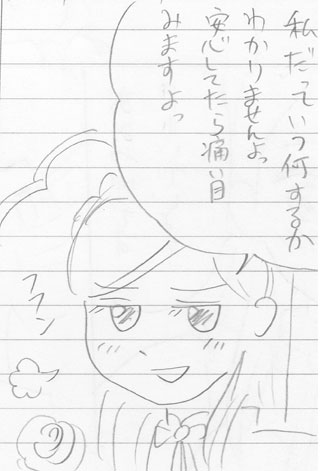 私だっていつ何するか
わかりませんよっ
安心してたら痛い目
みますよっ
フフン